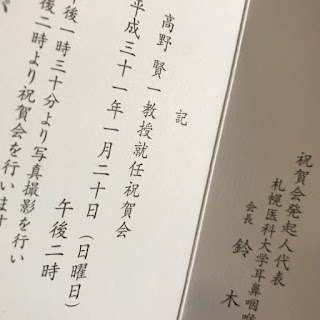 記
高野賢一教授就任祝賀会
平成三十一年一月二十日（日曜日）
午後二時
午後一時三十分より写真撮影を行い
午後二時より祝賀会を行います
祝賀会発起人代表
札幌医科大学耳鼻咽喉
会長 鈴木